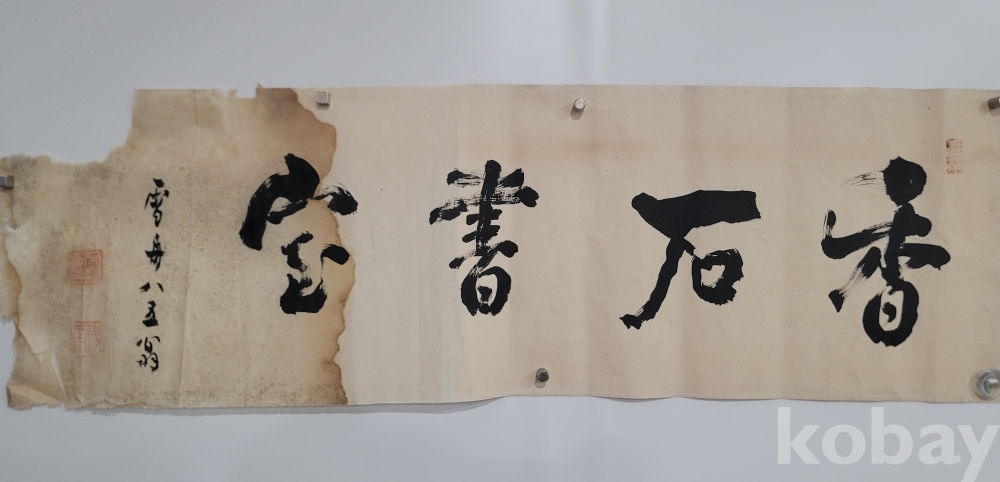 香石書室
雪舟八五翁
kobay